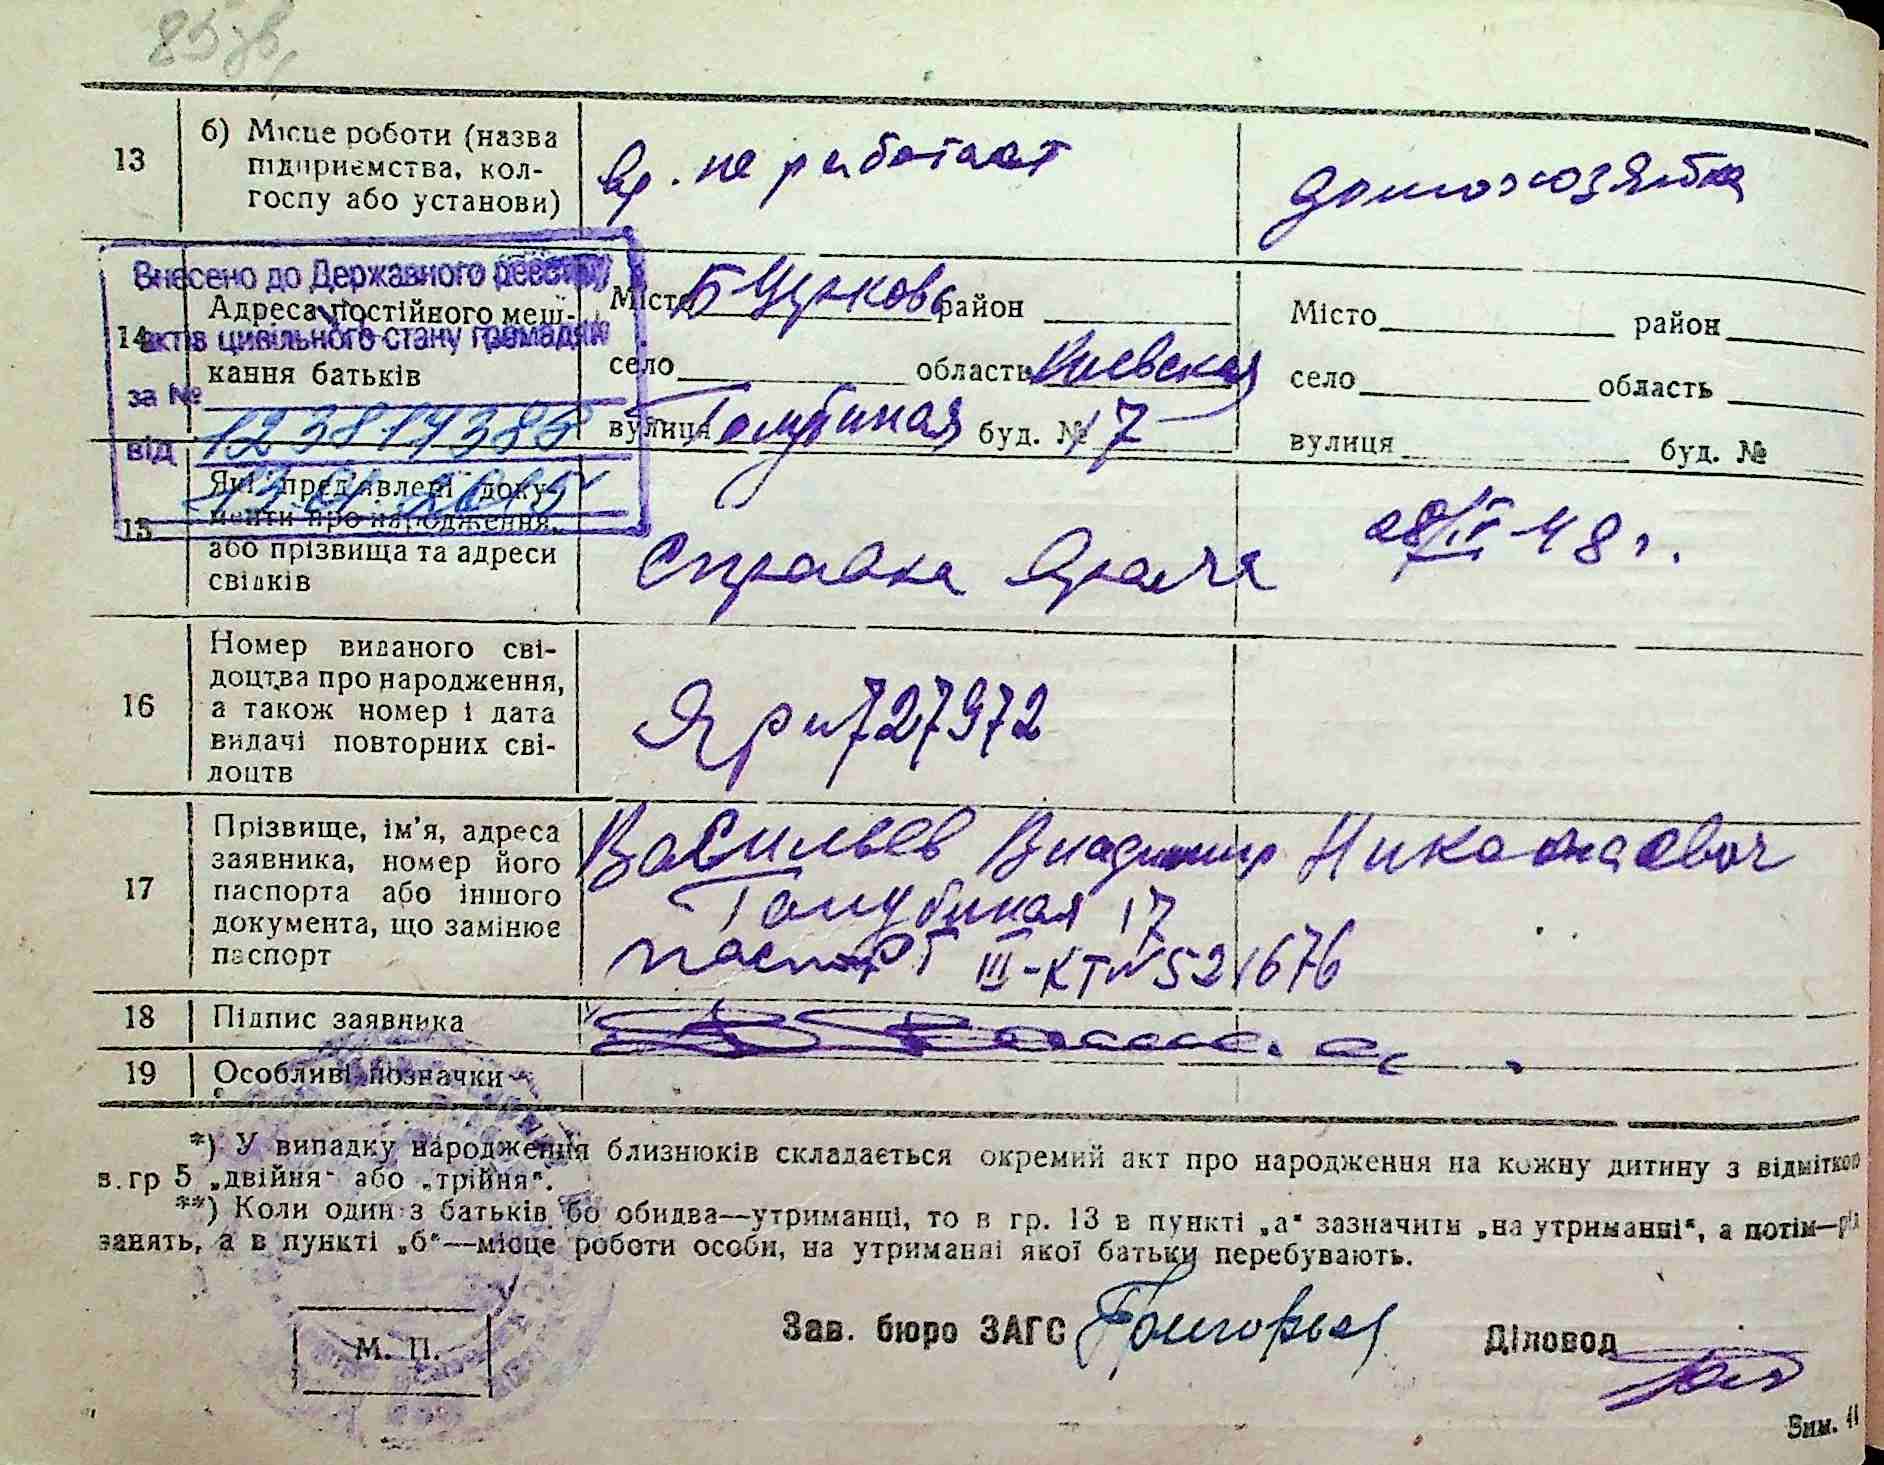 85 зв.
13
б) Місце роботи (назва
підприємства, кол-
госпу або установи)
вр. не работает
домохозяйка
Внесено до Державного реєстру
актів цивільного стану громадян
за №
12381438
від
14
Адреса постійного меш-
кання батьків
Місто Б Церковь район
село область Киевская
вулиця Голубиная буд. № 17
Місто район
село область
вулиця буд. №
15
Які пред'явлені доку-
менти про народження,
або прізвища та адреси
свідків
Справка врача
28/IV-48 г.
16
Номер виданого сві-
доцтва про народження,
а також номер і дата
видачі повторних сві-
доцтв
727972
17
Прізвище, ім'я, адреса
заявника, номер його
паспорта або іншого
документа, що замінює
паспорт
Васильев Владимир Николаевич
Голубиная 17
паспорт III-КТ № 521676
18
Підпис заявника
19
Особливі позначки
*) У випадку народження близнюків складається окремий акт про народження на кожну дитину з відміткою
в. гр 5 „двійня“ або „трійня“.
**) Коли один з батьків бо обидва—утриманці, то в гр. 13 в пункті „а“ зазначити „на утриманні“, а потім—рід
занять, а в пункті „б“—місце роботи особи, на утриманні якої батьки перебувають.
М. П.
Зав. бюро ЗАГС
Діловод
Зим. 11